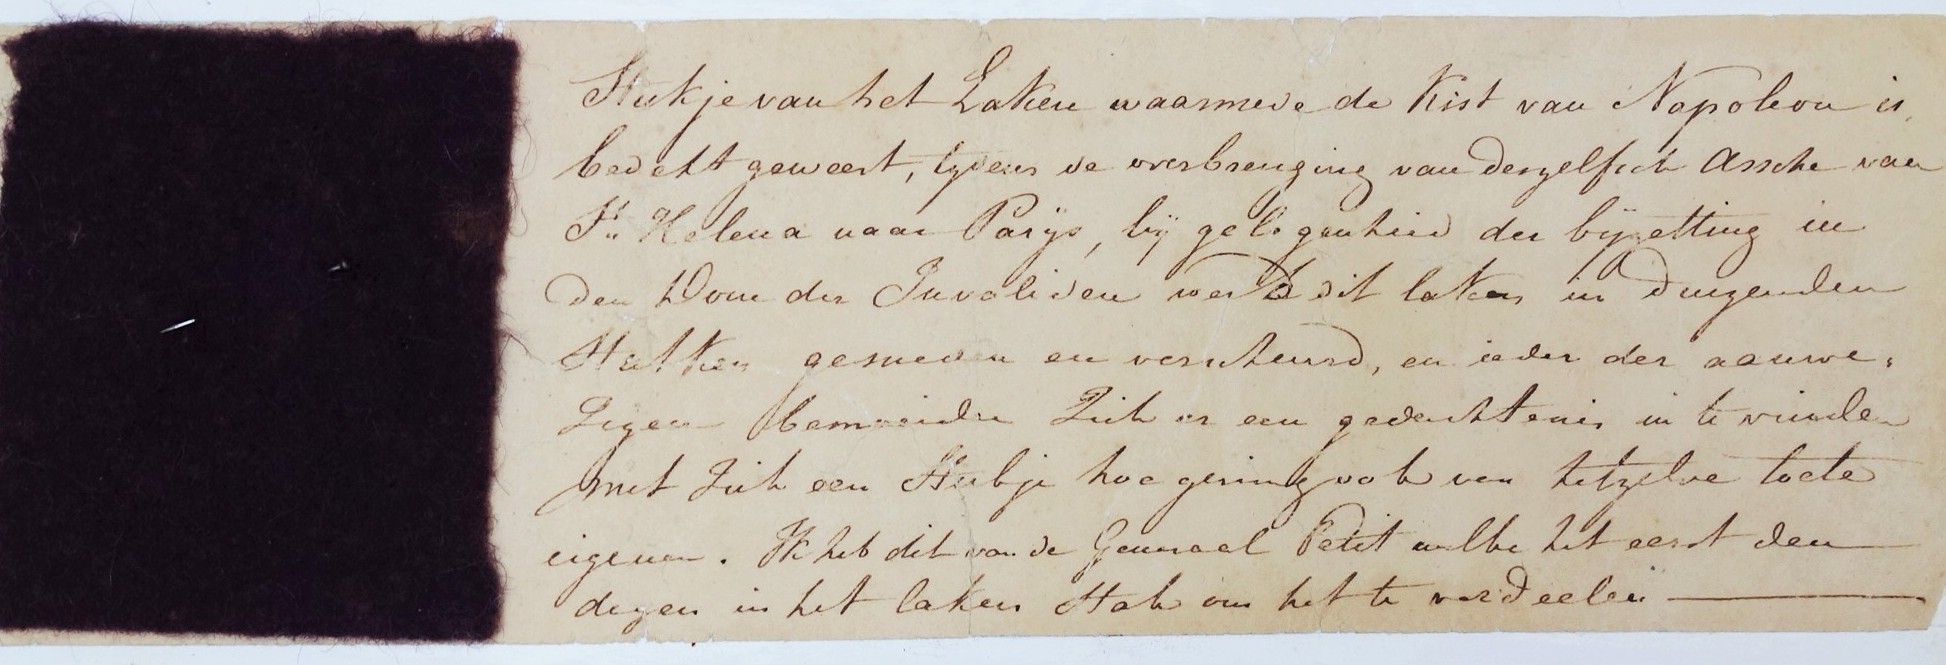 Stukje van het Laken waarmede de Kist van Napoleon is
bedekt geweest, tydens de overbrenging van deszelfsch Assche van
St. Helena naar Parijs, bij gelegenheid der bijzetting in
den Dom der Invaliden werd dit laken in duizenden
Stukken gesneden en verscheurd, en ieder der aanwe-
Zigen bemoeide Zich er een gedachtenis in te vinden
met Zich een Stukje hoe gering ook van hetzelve toete
eigenen. Ik heb dit van de Generaal Petit welke het eerst den
degen in het laken stak om het te verdeelen